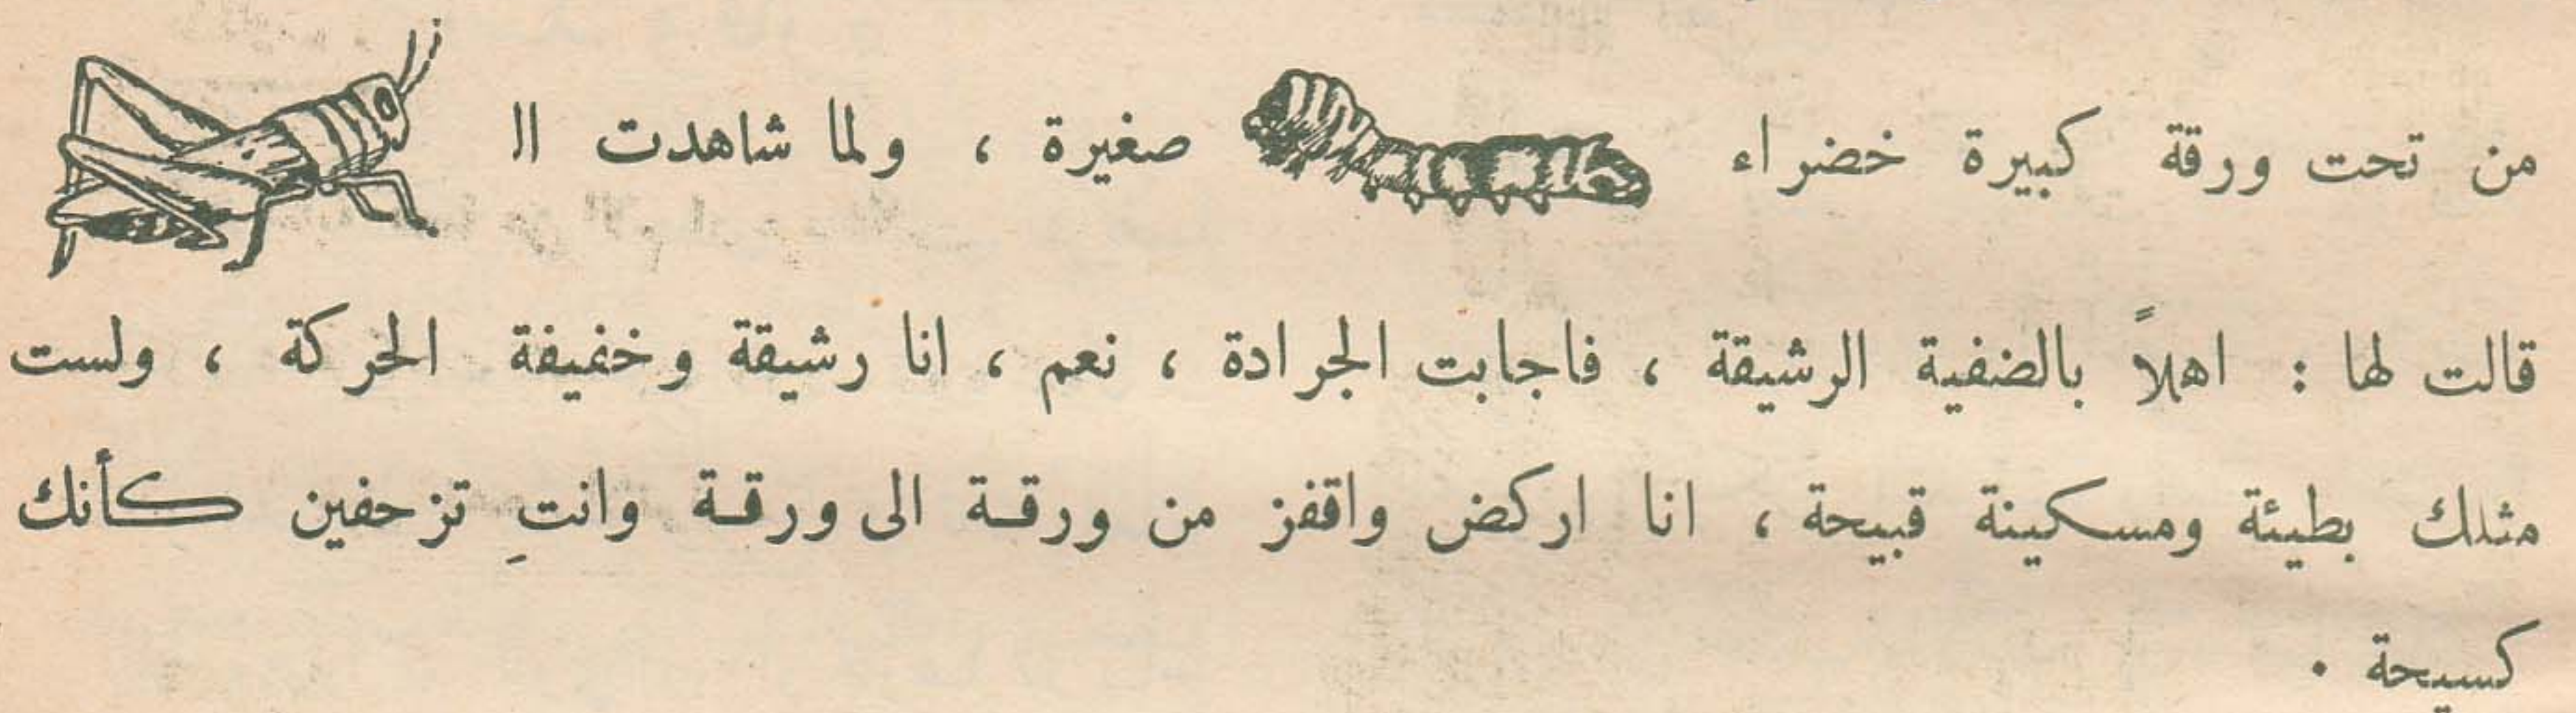 من تحت ورقة كبيرة خضراء صغيرة ، ولما شاهدت ال
قالت لها : اهلاً بالضفية الرشيقة ، فاجابت الجرادة ، نعم ، انا رشيقة وخفيفة الحركة ، ولست
مثلك بطيئة ومسكينة قبيحة ، انا اركض واقفز من ورقـة الى ورقـة وانتِ تزحفين كأنك
كسيحة .